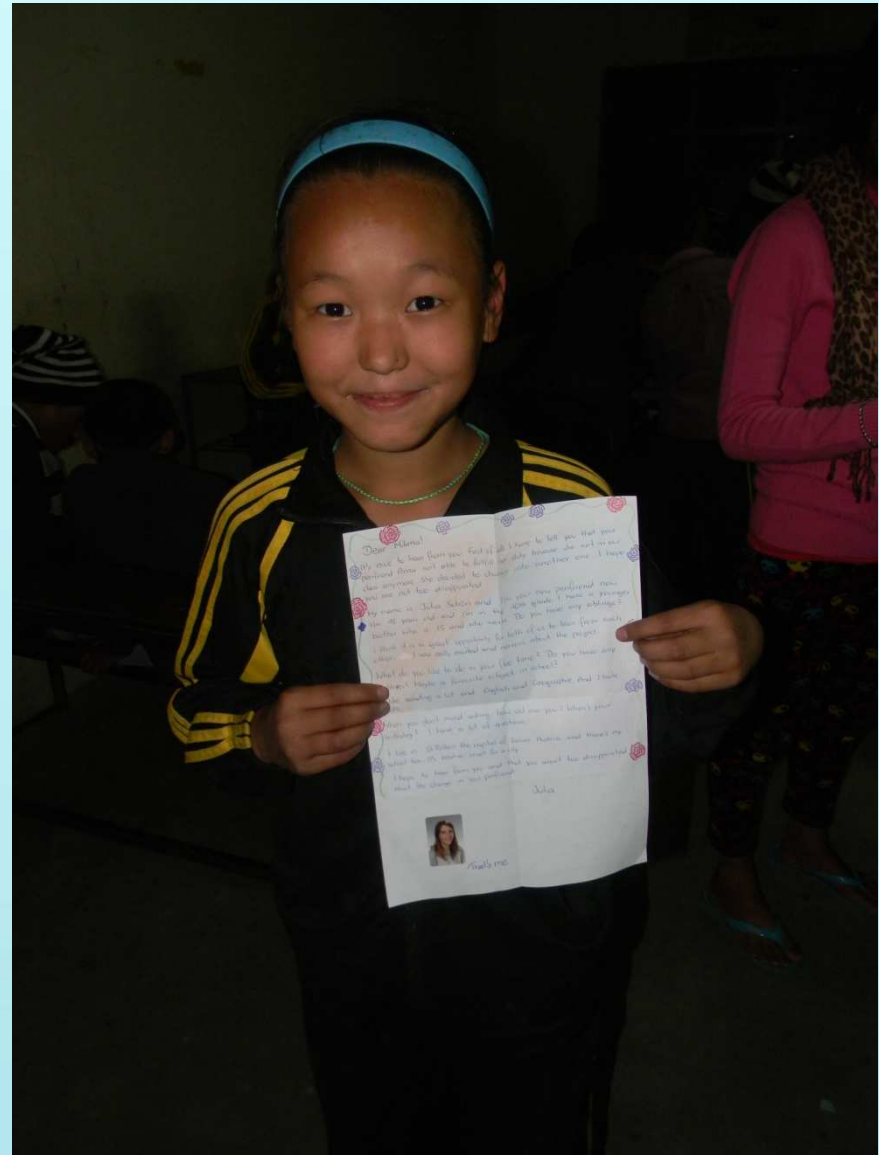 Dear Milema!
It's nice to hear from you. First of all I have to tell you that your
penfriend Anna isn't able to fulfill her duty because she isn't in our
class anymore. She decided to change into another one. I hope
you are not too disappointed.
My name is Julia and I'm your new penfriend now.
I'm years old and I'm in the grade. I have a younger
brother who is 15 and who Do you have any siblings?
I think it is a great opportunity for both of us to learn from each
other. I was really excited and about the project.
What do you like to do in your free time? Do you have any
Maybe a favourite subject in school?
I like reading a lot and English and Geography. And I hate
When you don't mind asking, how old are you? When's your
birthday? I have a lot of questions.
I live in the capital of Lower Austria and there's my
school too. It's
I hope to hear from you and that you aren't too disappointed
about the change in your penfriend.
Julia
That's me